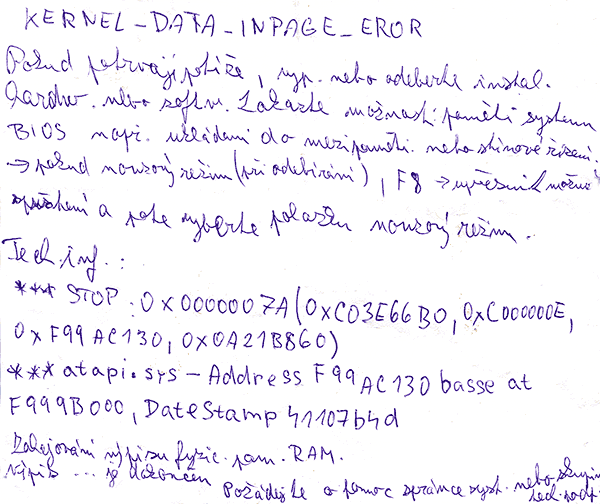 KERNEL_DATA_INPAGE_EROR
Pokud potrvají potíže, vyp. nebo odeberte instal.
hardw. nebo softw. Zakažte možnosti paměti systému
BIOS např. ukládání do mezipaměti nebo stínové řízení.
→ pokud nouzový režim (při odebírání), F8 → upřesnit možné
spuštení a pote vyberte položku nouzový režim.
Tech. inf.:
*** STOP: 0x0000007A (0xC03E66B0, 0xC000000E,
0xF99AC130, 0x0A21B860)
*** atapi.sys - Address F99AC130 basse at
F999B000, DateStamp 41107b4d
Zahajování výpisu fyzic. pam. RAM.
Výpis ... je dokončen
Požádejte o pomoc správce syst. nebo skupin
tech. podp.